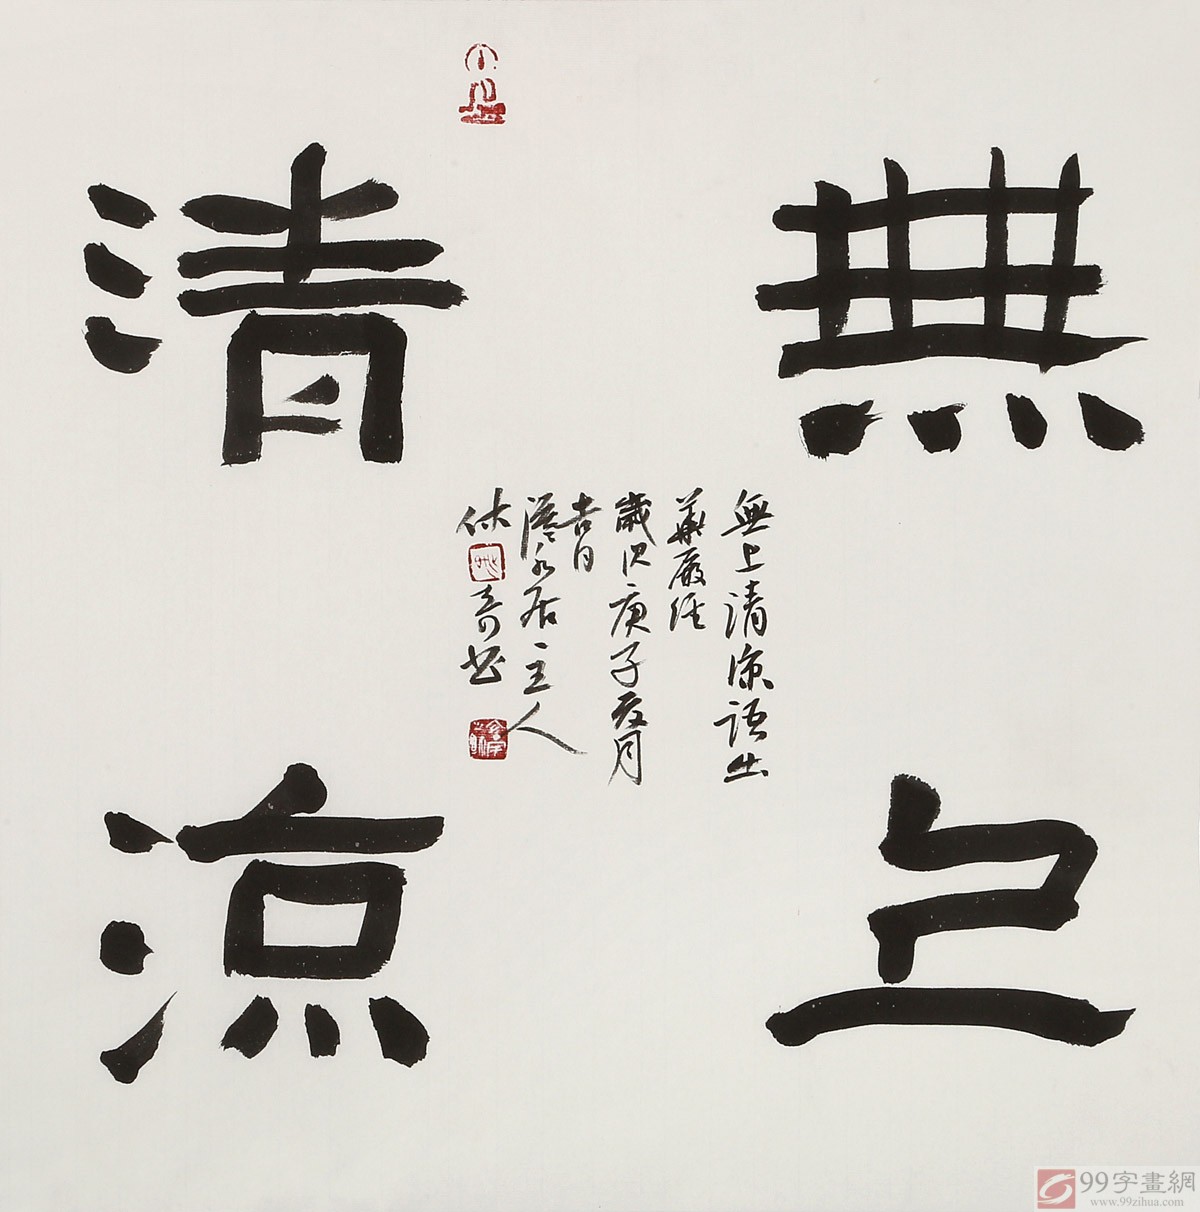 無上
清涼
無上清涼語出
華嚴經
歲次庚子夏月
吉日
主人
休
奇書
99字畫網
www.99zihua.com